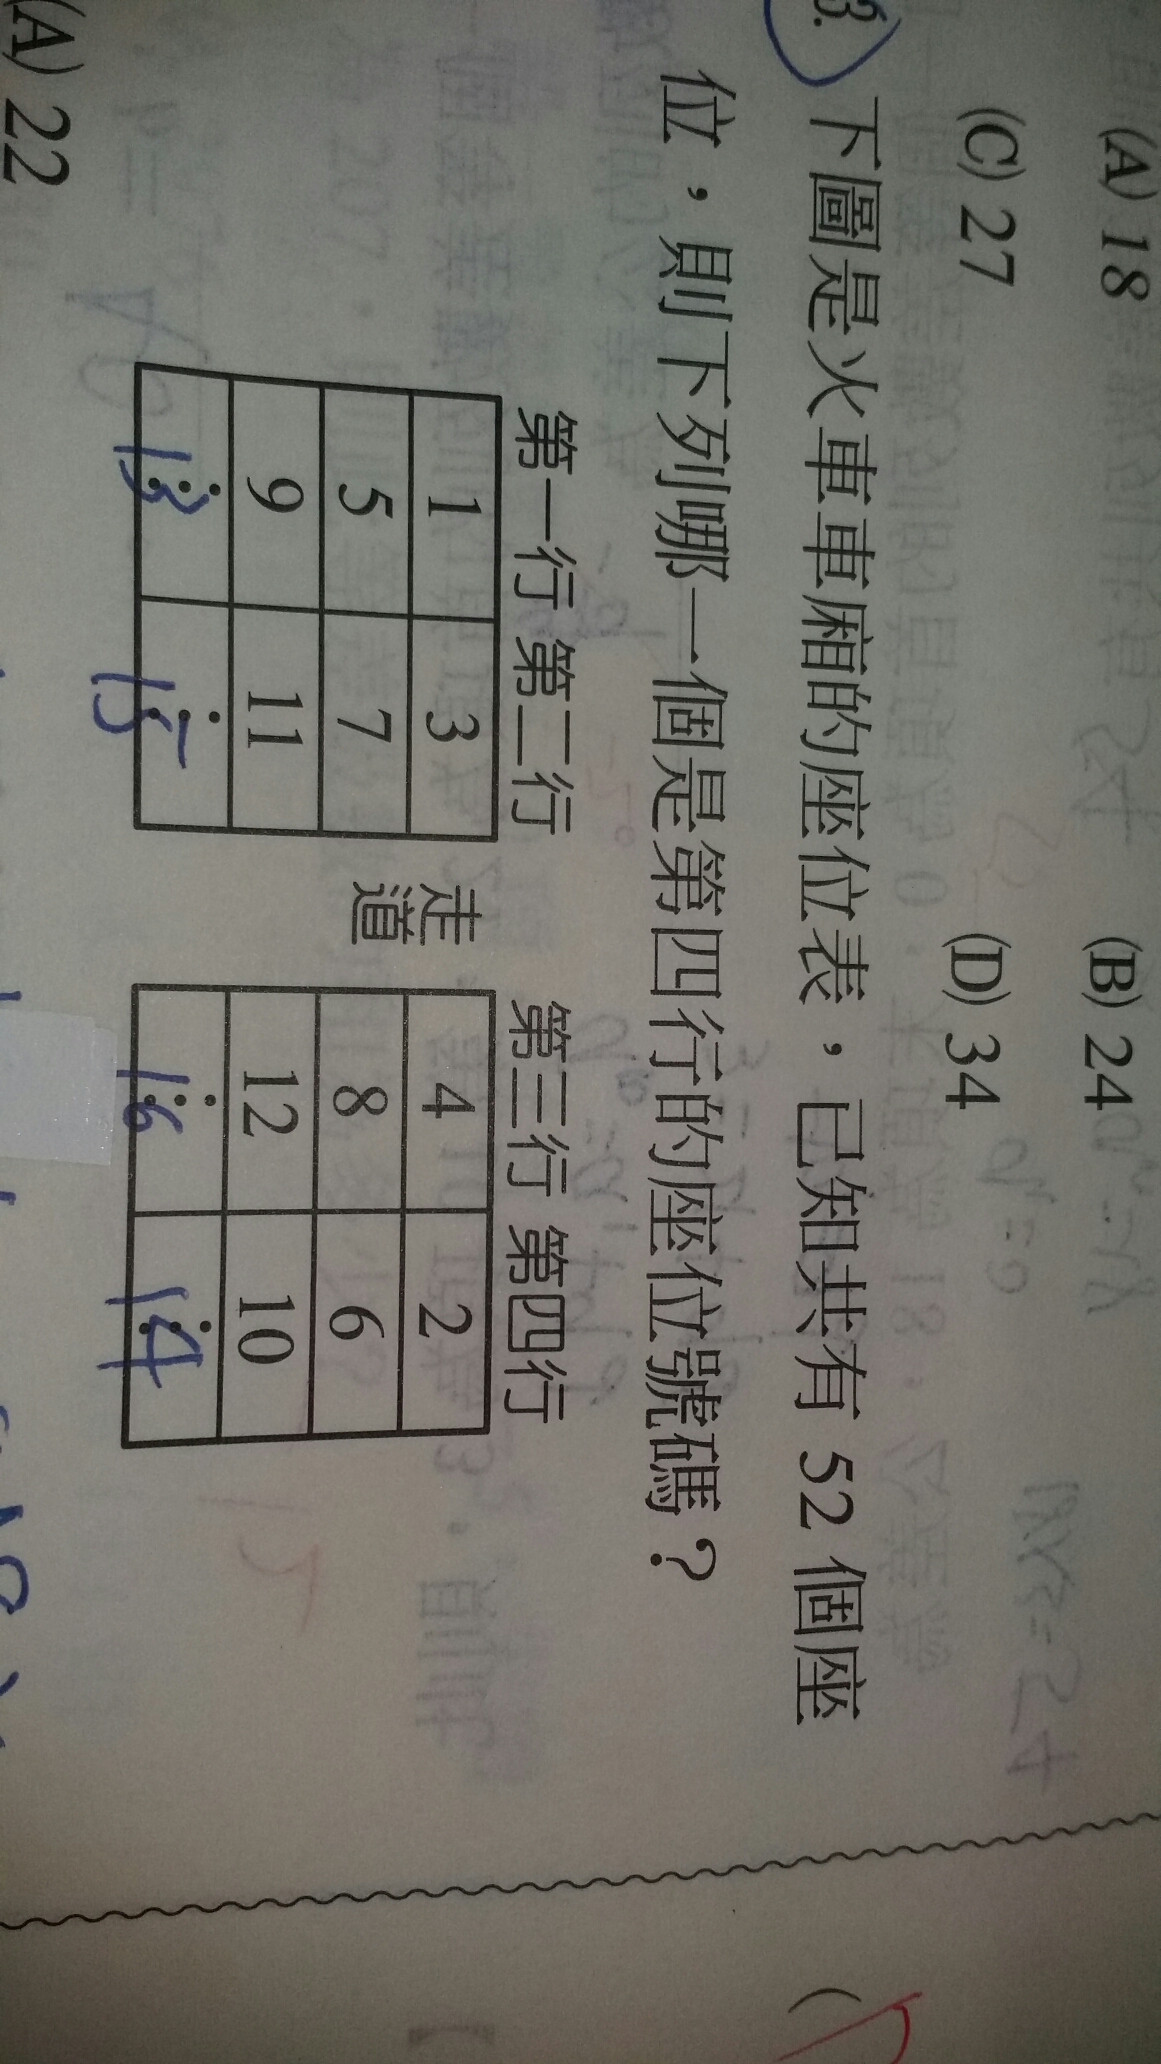 (A) 18 (B) 24
(C) 27 (D) 34
3. 下圖是火車車廂的座位表，已知共有 52 個座
位，則下列哪一個是第四行的座位號碼？
第一行 第二行 走道 第三行 第四行
1 3 4 2
5 7 8 6
9 11 12 10
13 15 16 14
(A) 22